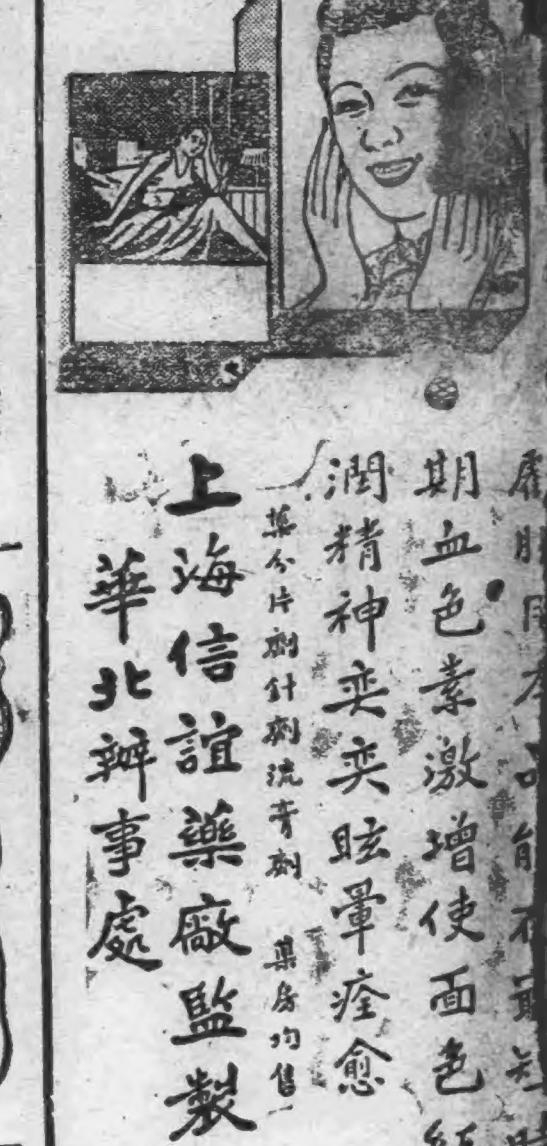 服用本品能在最短時
期血色素激增使面色
潤精神奕奕眩暈痊愈
藥分片劑針劑流膏劑 藥房均售
上海信誼藥廠監製
華北辦事處